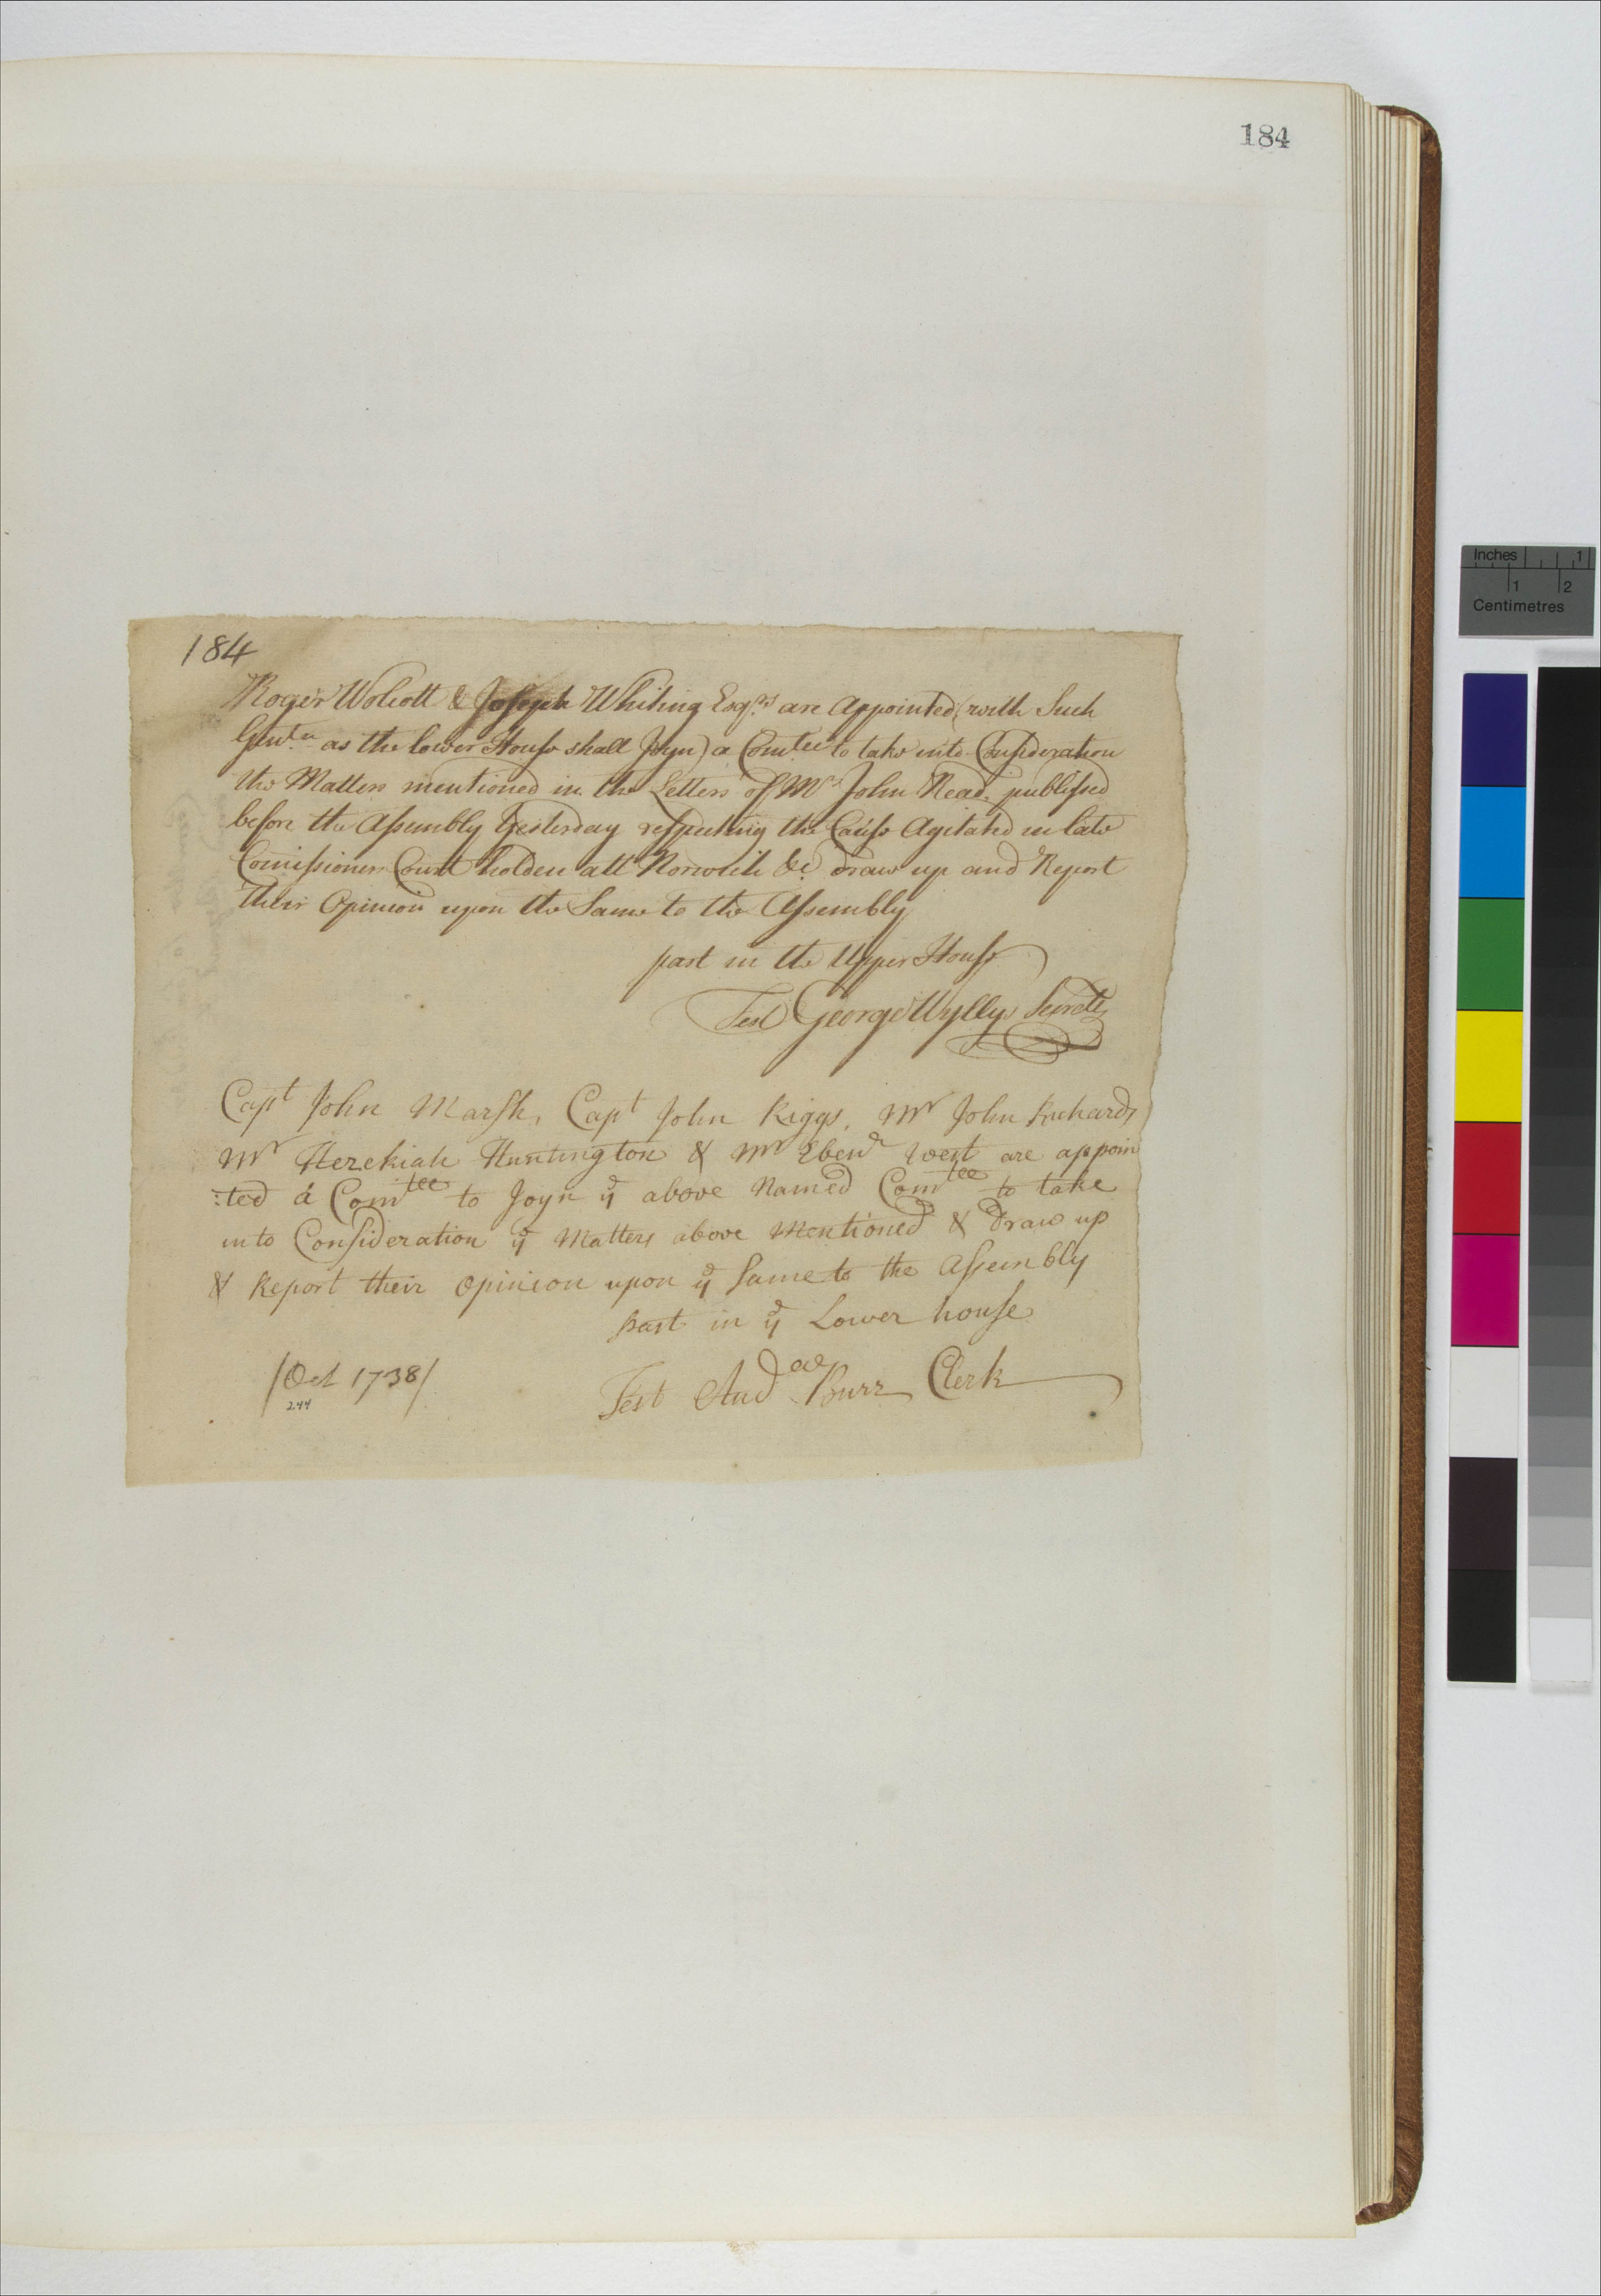 184
184
Roger Wolcott & Joseph Whiting Esqrs are Appointed (with Such
Gentn as the lower House shall Joyn) a Comtee to take into Consideration
the Matters mentioned in the Letters of Mr John Read publissed
before the Assembly Yesterday respecting the Causs Agitated in late
Comissioners Court holden att Norwich &c draw up and Report
their Opinion upon the Same to the Assembly
past in the Upper House
Test George Wyllys Secrety
Capt John Marsh, Capt John Riggs, Mr John Richards
Mr Hezekiah Huntington & Mr Ebenr West are appoin
:ted a Comtee to Joyn ye above Named Comtee to take
into Consideration ye Matters above Mentioned & Draw up
& Report their Opinion upon ye Same to the Assembly
past in ye Lower house
Test Andw Burr Clerk
/Oct 1738/
244
Inches 1
1 2
Centimetres